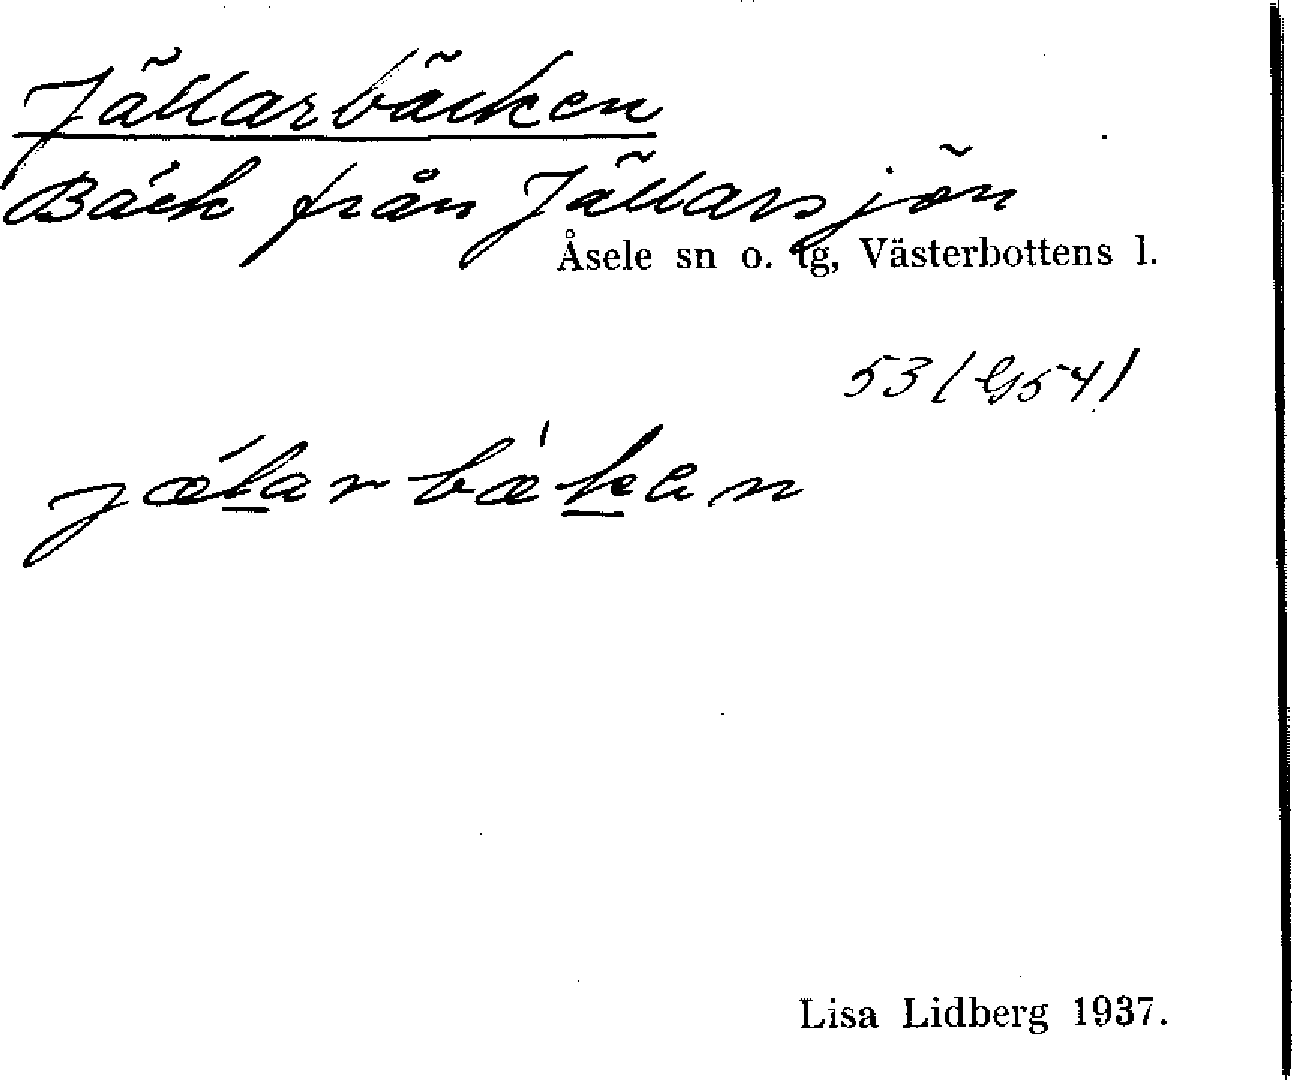 Jällarbäcken
Bäck från Jällarsjön
Åsele sn o. tg, Västerbottens l.
53 (G54)
jǽl̲arbæ̍k̲en
Lisa Lidberg 1937.